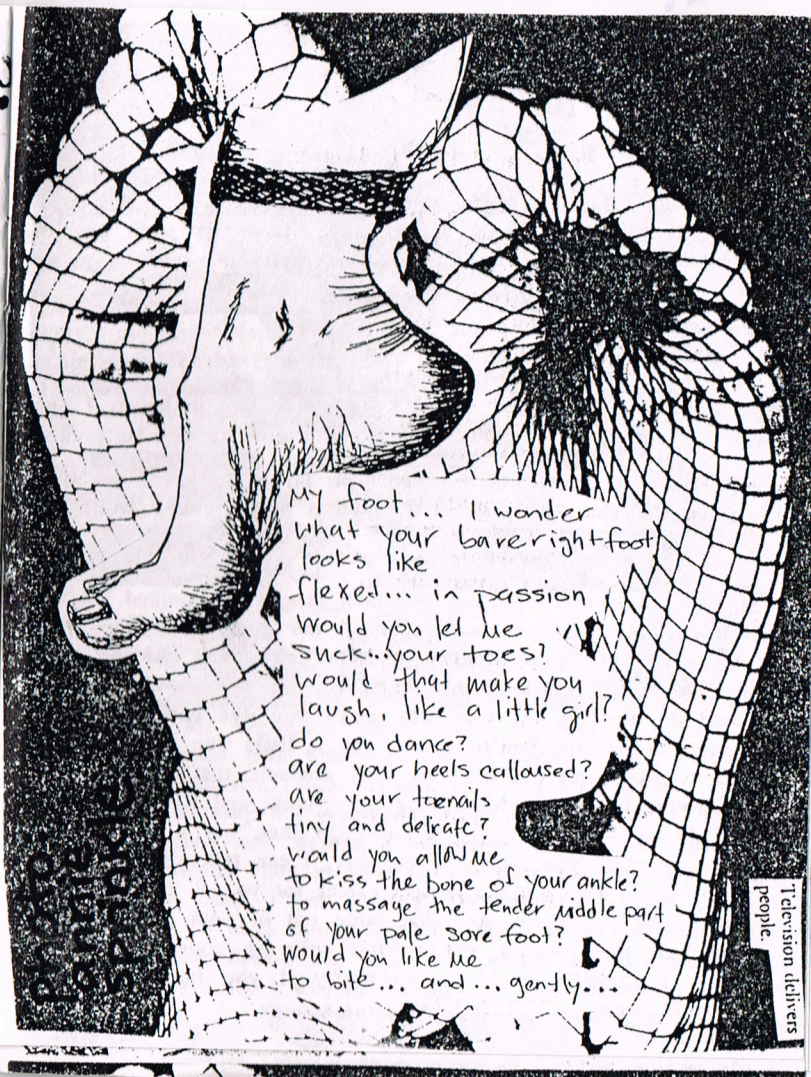 My foot... I wonder
what your bare right foot
looks like
flexed... in passion
would you let me
suck..your toes?
would that make you
laugh, like a little girl?
do you dance?
are your heels calloused?
are your toenails
tiny and delicate?
would you allow me
to kiss the bone of your ankle?
to massage the tender middle part
of your pale sore foot?
would you like me
to bite... and... gently...
Photo:
annie
sprinkle
Television delivers
people.